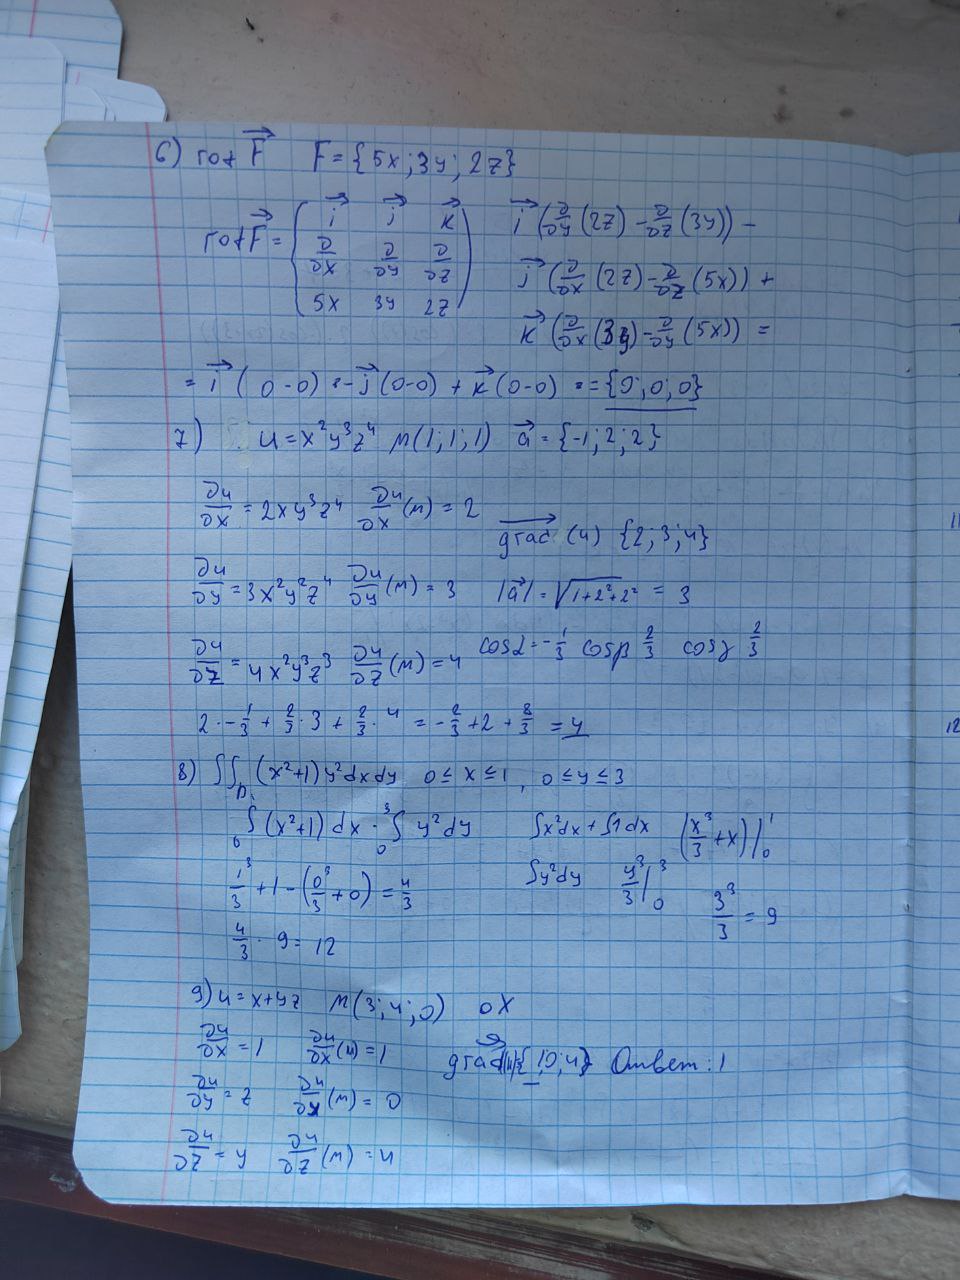 6) rot F⃗ F = {5x; 3y; 2z}
rot F⃗ = ( i⃗ j⃗ k⃗ i⃗ (∂/∂y (2z) - ∂/∂z (3y)) -
∂/∂x ∂/∂y ∂/∂z j⃗ (∂/∂x (2z) - ∂/∂z (5x)) +
5x 3y 2z ) k⃗ (∂/∂x (3y) - ∂/∂y (5x)) =
= i⃗ (0-0) - j⃗ (0-0) + k⃗ (0-0) = = {0; 0; 0}
7) u = x²y³z⁴ M(1; 1; 1) a⃗ = {-1; 2; 2}
∂u/∂x = 2xy³z⁴ ∂u/∂x (M) = 2
grad (u) {2; 3; 4}
∂u/∂y = 3x²y²z⁴ ∂u/∂y (M) = 3 |a⃗| = √(1+2²+2²) = 3
∂u/∂z = 4x²y³z³ ∂u/∂z (M) = 4 cosα = -1/3 cosβ 2/3 cosγ 2/3
2 · -1/3 + 2/3 · 3 + 2/3 · 4 = -2/3 + 2 + 8/3 = 4
8) ∫∫_D (x²+1) y² dx dy 0 ≤ x ≤ 1, 0 ≤ y ≤ 3
∫₀¹ (x²+1) dx · ∫₀³ y² dy ∫x²dx + ∫1 dx (x³/3 + x)|₀¹
1³/3 + 1 - (0³/3 + 0) = 4/3 ∫y²dy y³/3 |₀³ 3³/3 = 9
4/3 · 9 = 12
9) u = x+yz M(3; 4; 0) OX
∂u/∂x = 1 ∂u/∂x (M) = 1 grad(u) {1; 0; 4} Ответ: 1
∂u/∂y = z ∂u/∂y (M) = 0
∂u/∂z = y ∂u/∂z (M) = 4
11
12